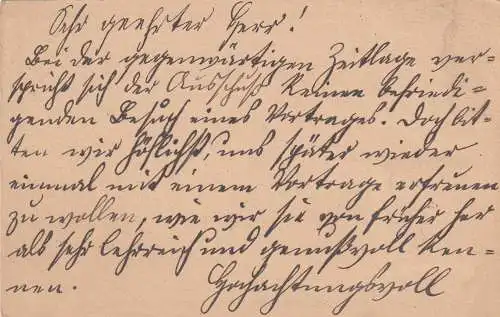 Sehr geehrter Herr!
Bei der gegenwärtigen Zeitlage ver-
spricht sich der Ausschuß keinen befriedi-
genden Besuch eines Vortrages. Doch bit-
ten wir höflichst, uns später wieder
einmal mit einem Vortrage erfreuen
zu wollen, wie wir sie von früher her
als sehr lehrreich und genußvoll ken-
nen. Hochachtungsvoll